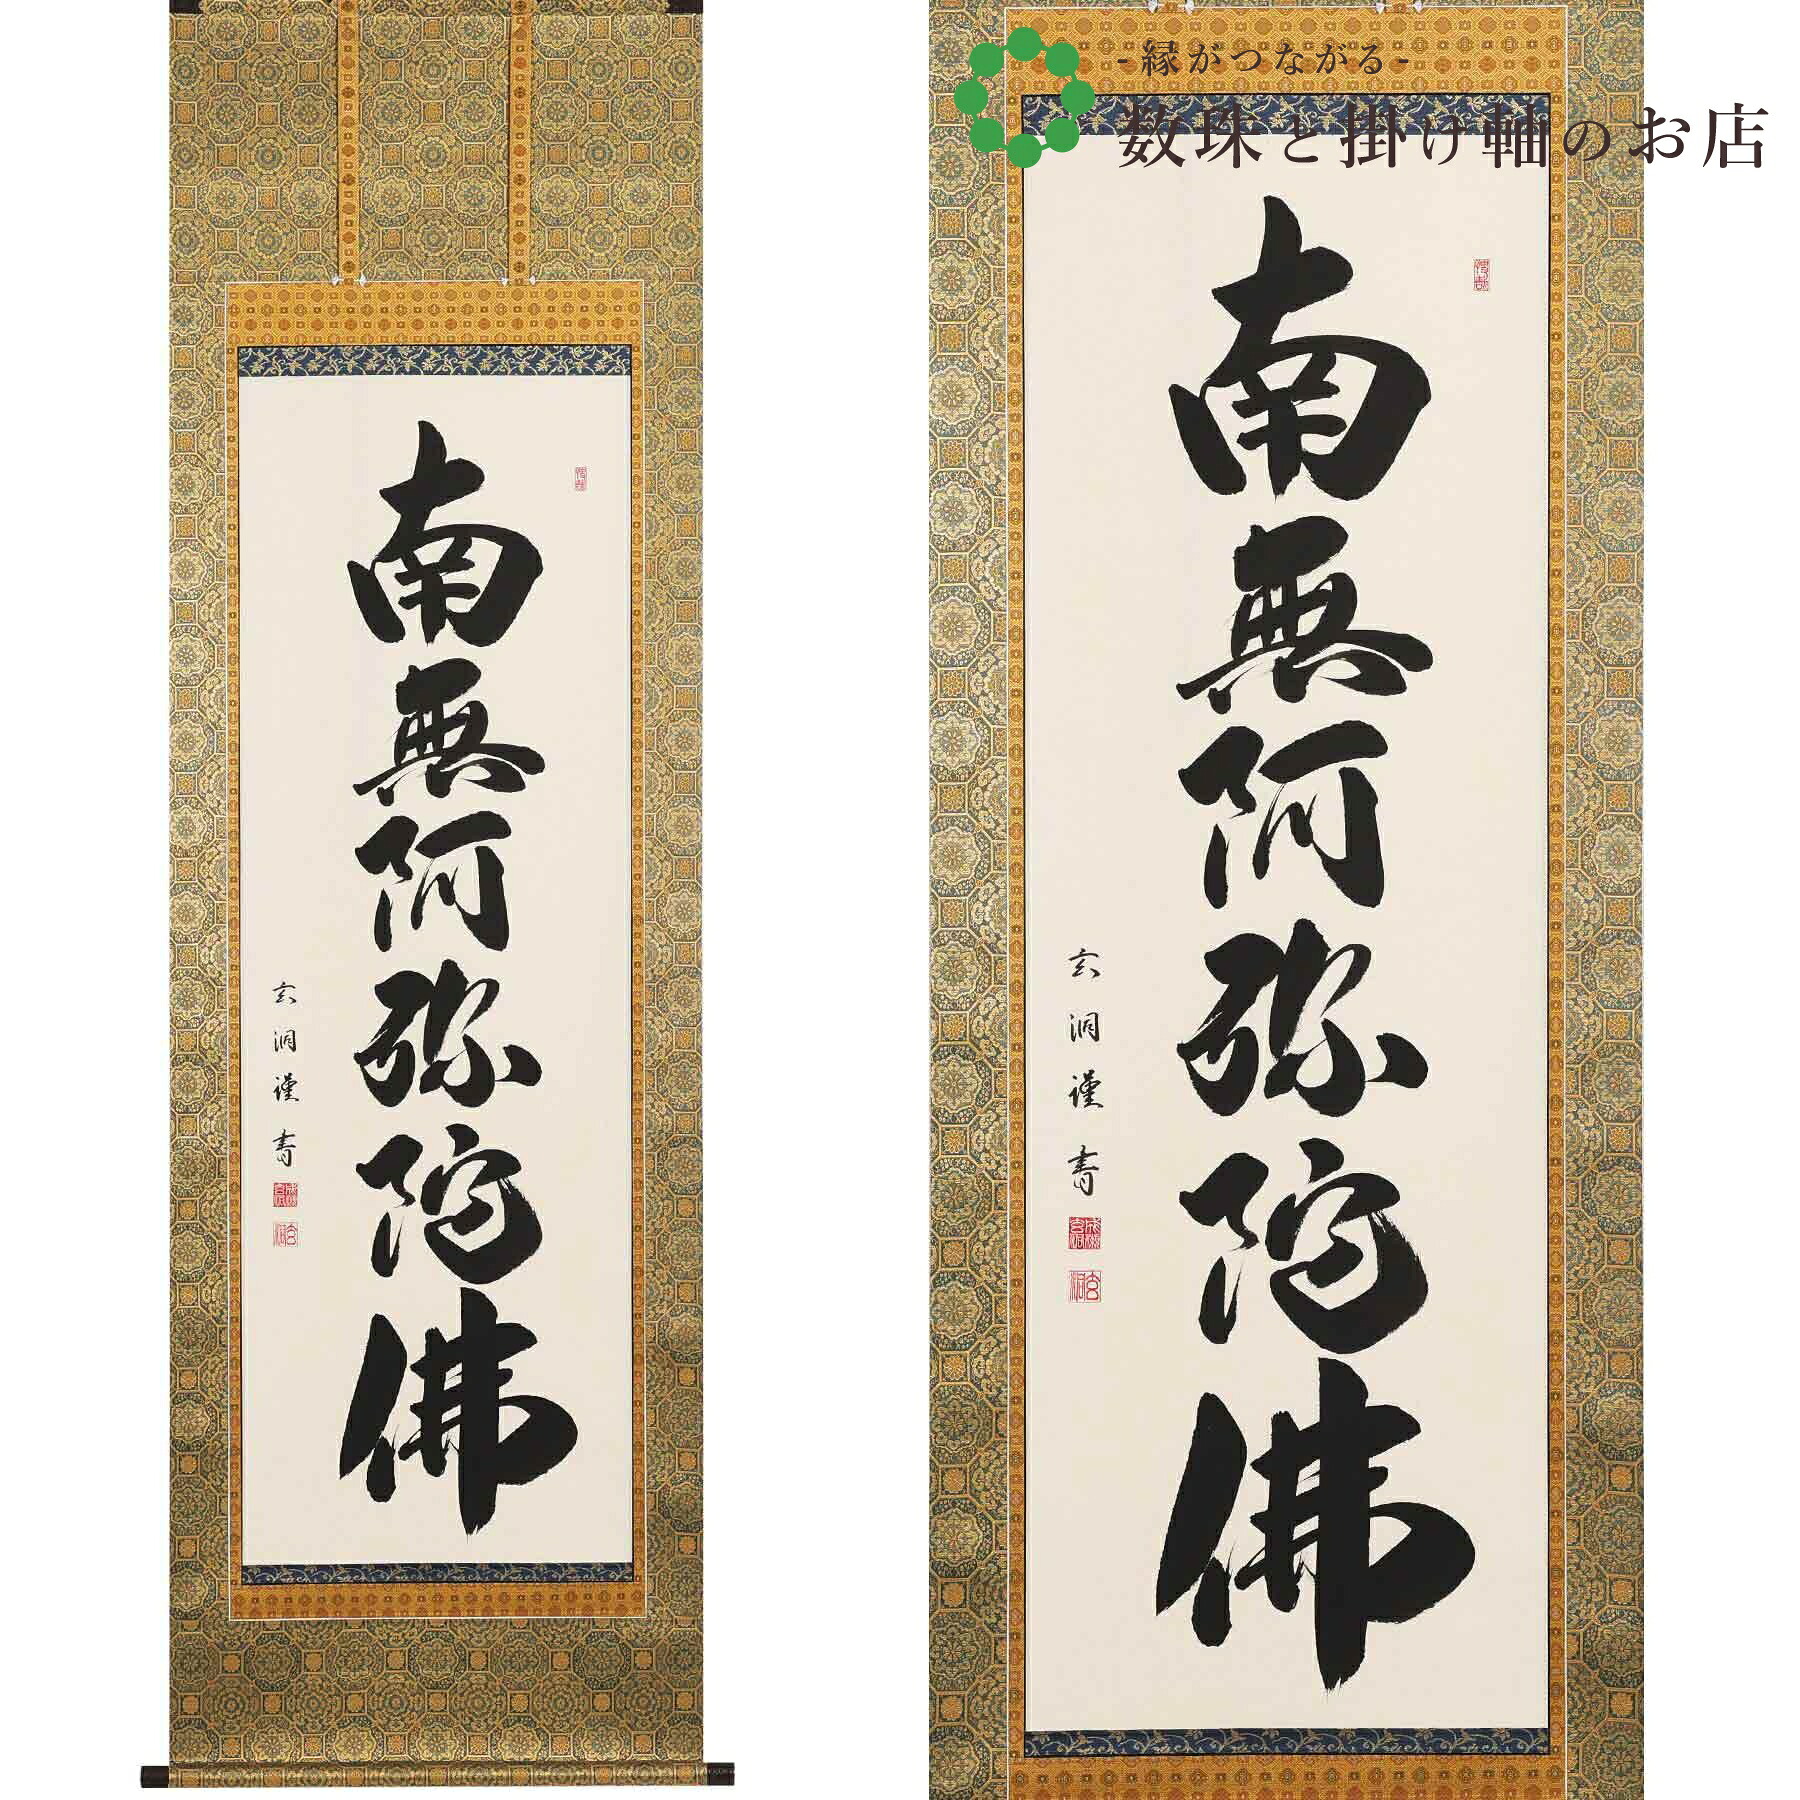 南無阿弥陀佛
玄洞謹書
-縁がつながる-
数珠と掛け軸のお店
南無阿弥陀佛
玄洞謹書